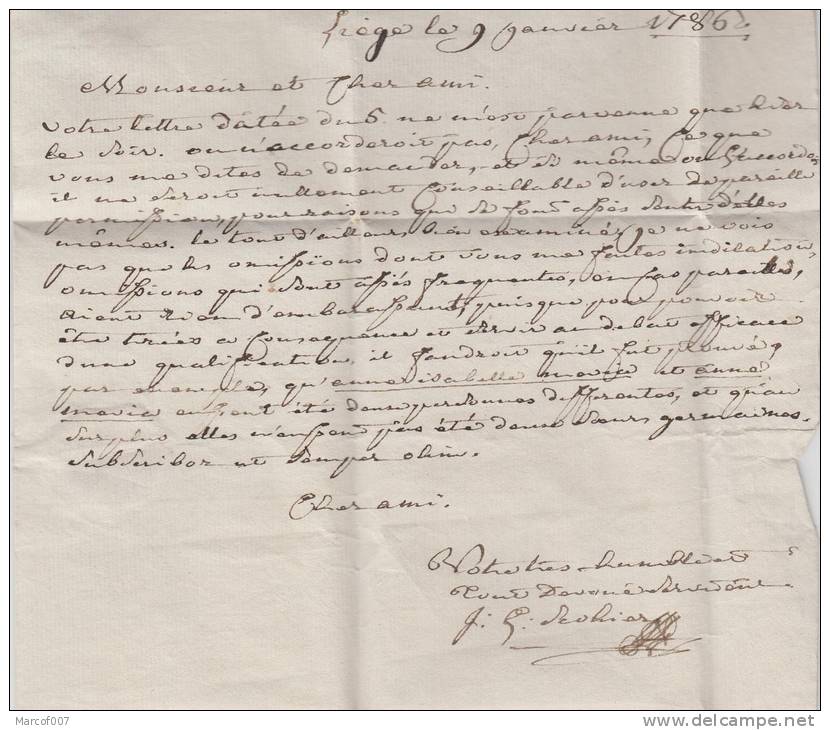 Liège le 9 janvier 1786
Monsieur et Cher ami.
votre lettre datée du 6. ne m'est parvenue que hier
le soir. on n'accorderoit pas, Cher ami, ce que
vous me dites de demander, et si même on l'accordoit
il ne seroit nullement Conseillable d'user de pareille
permission, pour raisons que se font assés sentir d'elles
mêmes. le tout d'ailleurs bien examiné, je ne vois
pas que les omissions dont vous me faites indication,
omissions qui sont assés frequentes, en cas pareilles,
aient rien d'embarassant, puisque pour pouvoir
être tirées a Consequence et servir au debat efficace
d'une qualification, il faudroit qu'il fut prouvé,
par exemple, qu'anne isabelle maria et anne
maria eussent été deux personnes differentes, et qu'au
surplus elles n'aussent pas été deux sœurs germaines.
Subscribor ut semper olim.
Cher ami.
Votre tres humble et
tout Devoué serviteur
J: G:
Marcof007
delcampe.net